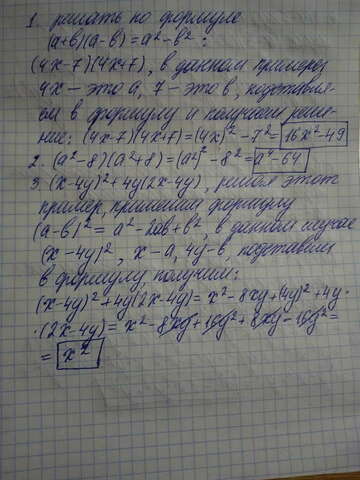 1. решать по формуле
(a+в)(a-в)=a²-в²:
(4x-7)(4x+7), в данном примере
4x - это a, 7 - это в, подставля-
ем в формулу и получаем реше-
ние: (4x-7)(4x+7)=(4x)²-7²=16x²-49
2. (a²-8)(a²+8)=(a²)²-8²=a⁴-64
3. (x-4y)²+4y(2x-4y), решая этот
пример, применим формулу
(a-в)²=a²-2aв+в², в данном случае
(x-4y)², x-a, 4y-в, подставим
в формулу, получим:
(x-4y)²+4y(2x-4y)=x²-8xy+(4y)²+4y·
·(2x-4y)=x²-8xy+16y²+8xy-16y²=
=x²